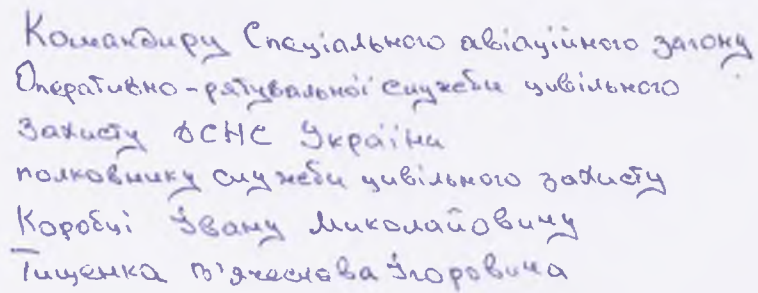 Командиру Спеціального авіаційного загону
Оперативно-рятувальної служби цивільного
Захисту ДСНС України
полковнику служби цивільного захисту
Коробці Івану Миколайовичу
Тищенка В'ячеслава Ігоровича